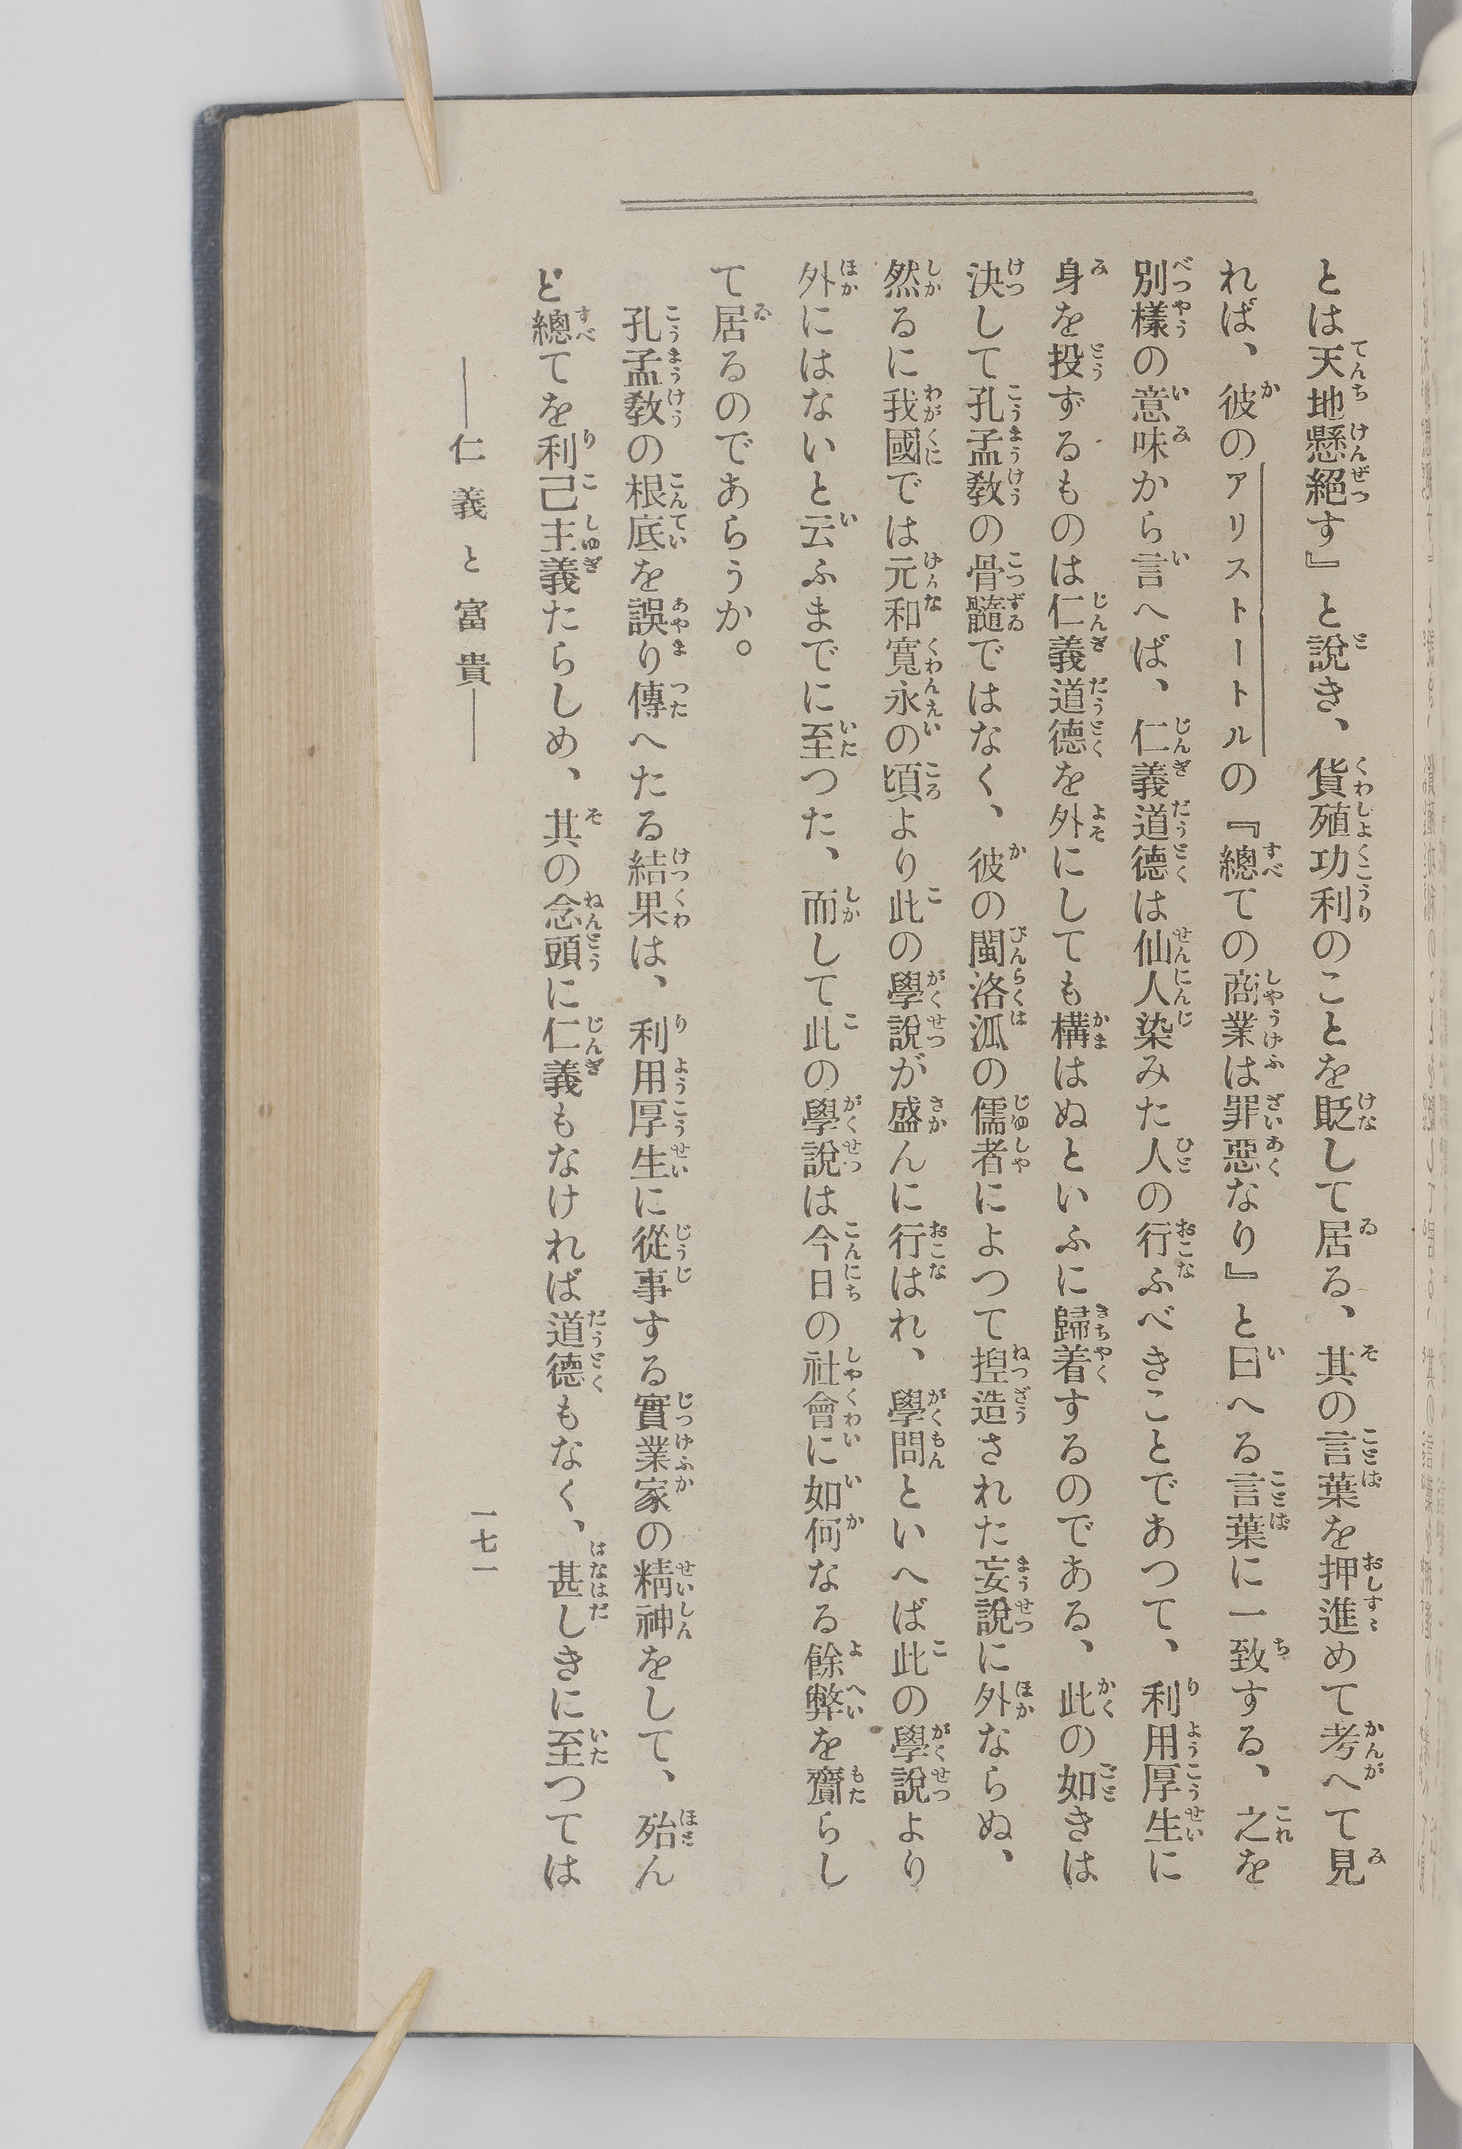 とは天地懸絕す』と說き、貨殖功利のことを貶して居る、其の言葉を押進めて考へて見
れば、彼のアリストートルの『總ての商業は罪惡なり』と曰へる言葉に一致する、之を
別樣の意味から言へば、仁義道德は仙人染みた人の行ふべきことであつて、利用厚生に
身を投ずるものは仁義道德を外にしても構はぬといふに歸着するのである、此の如きは
決して孔孟敎の骨髓ではなく、彼の閩洛派の儒者によつて揑造された妄說に外ならぬ、
然るに我國では元和寬永の頃より此の學說が盛んに行はれ、學問といへば此の學說より
外にはないと云ふまでに至つた、而して此の學說は今日の社會に如何なる餘弊を齎らし
て居るのであらうか。
孔孟敎の根底を誤り傳へたる結果は、利用厚生に從事する實業家の精神をして、殆ん
ど總てを利己主義たらしめ、其の念頭に仁義もなければ道德もなく、甚しきに至つては
――仁義と富貴――
一七一